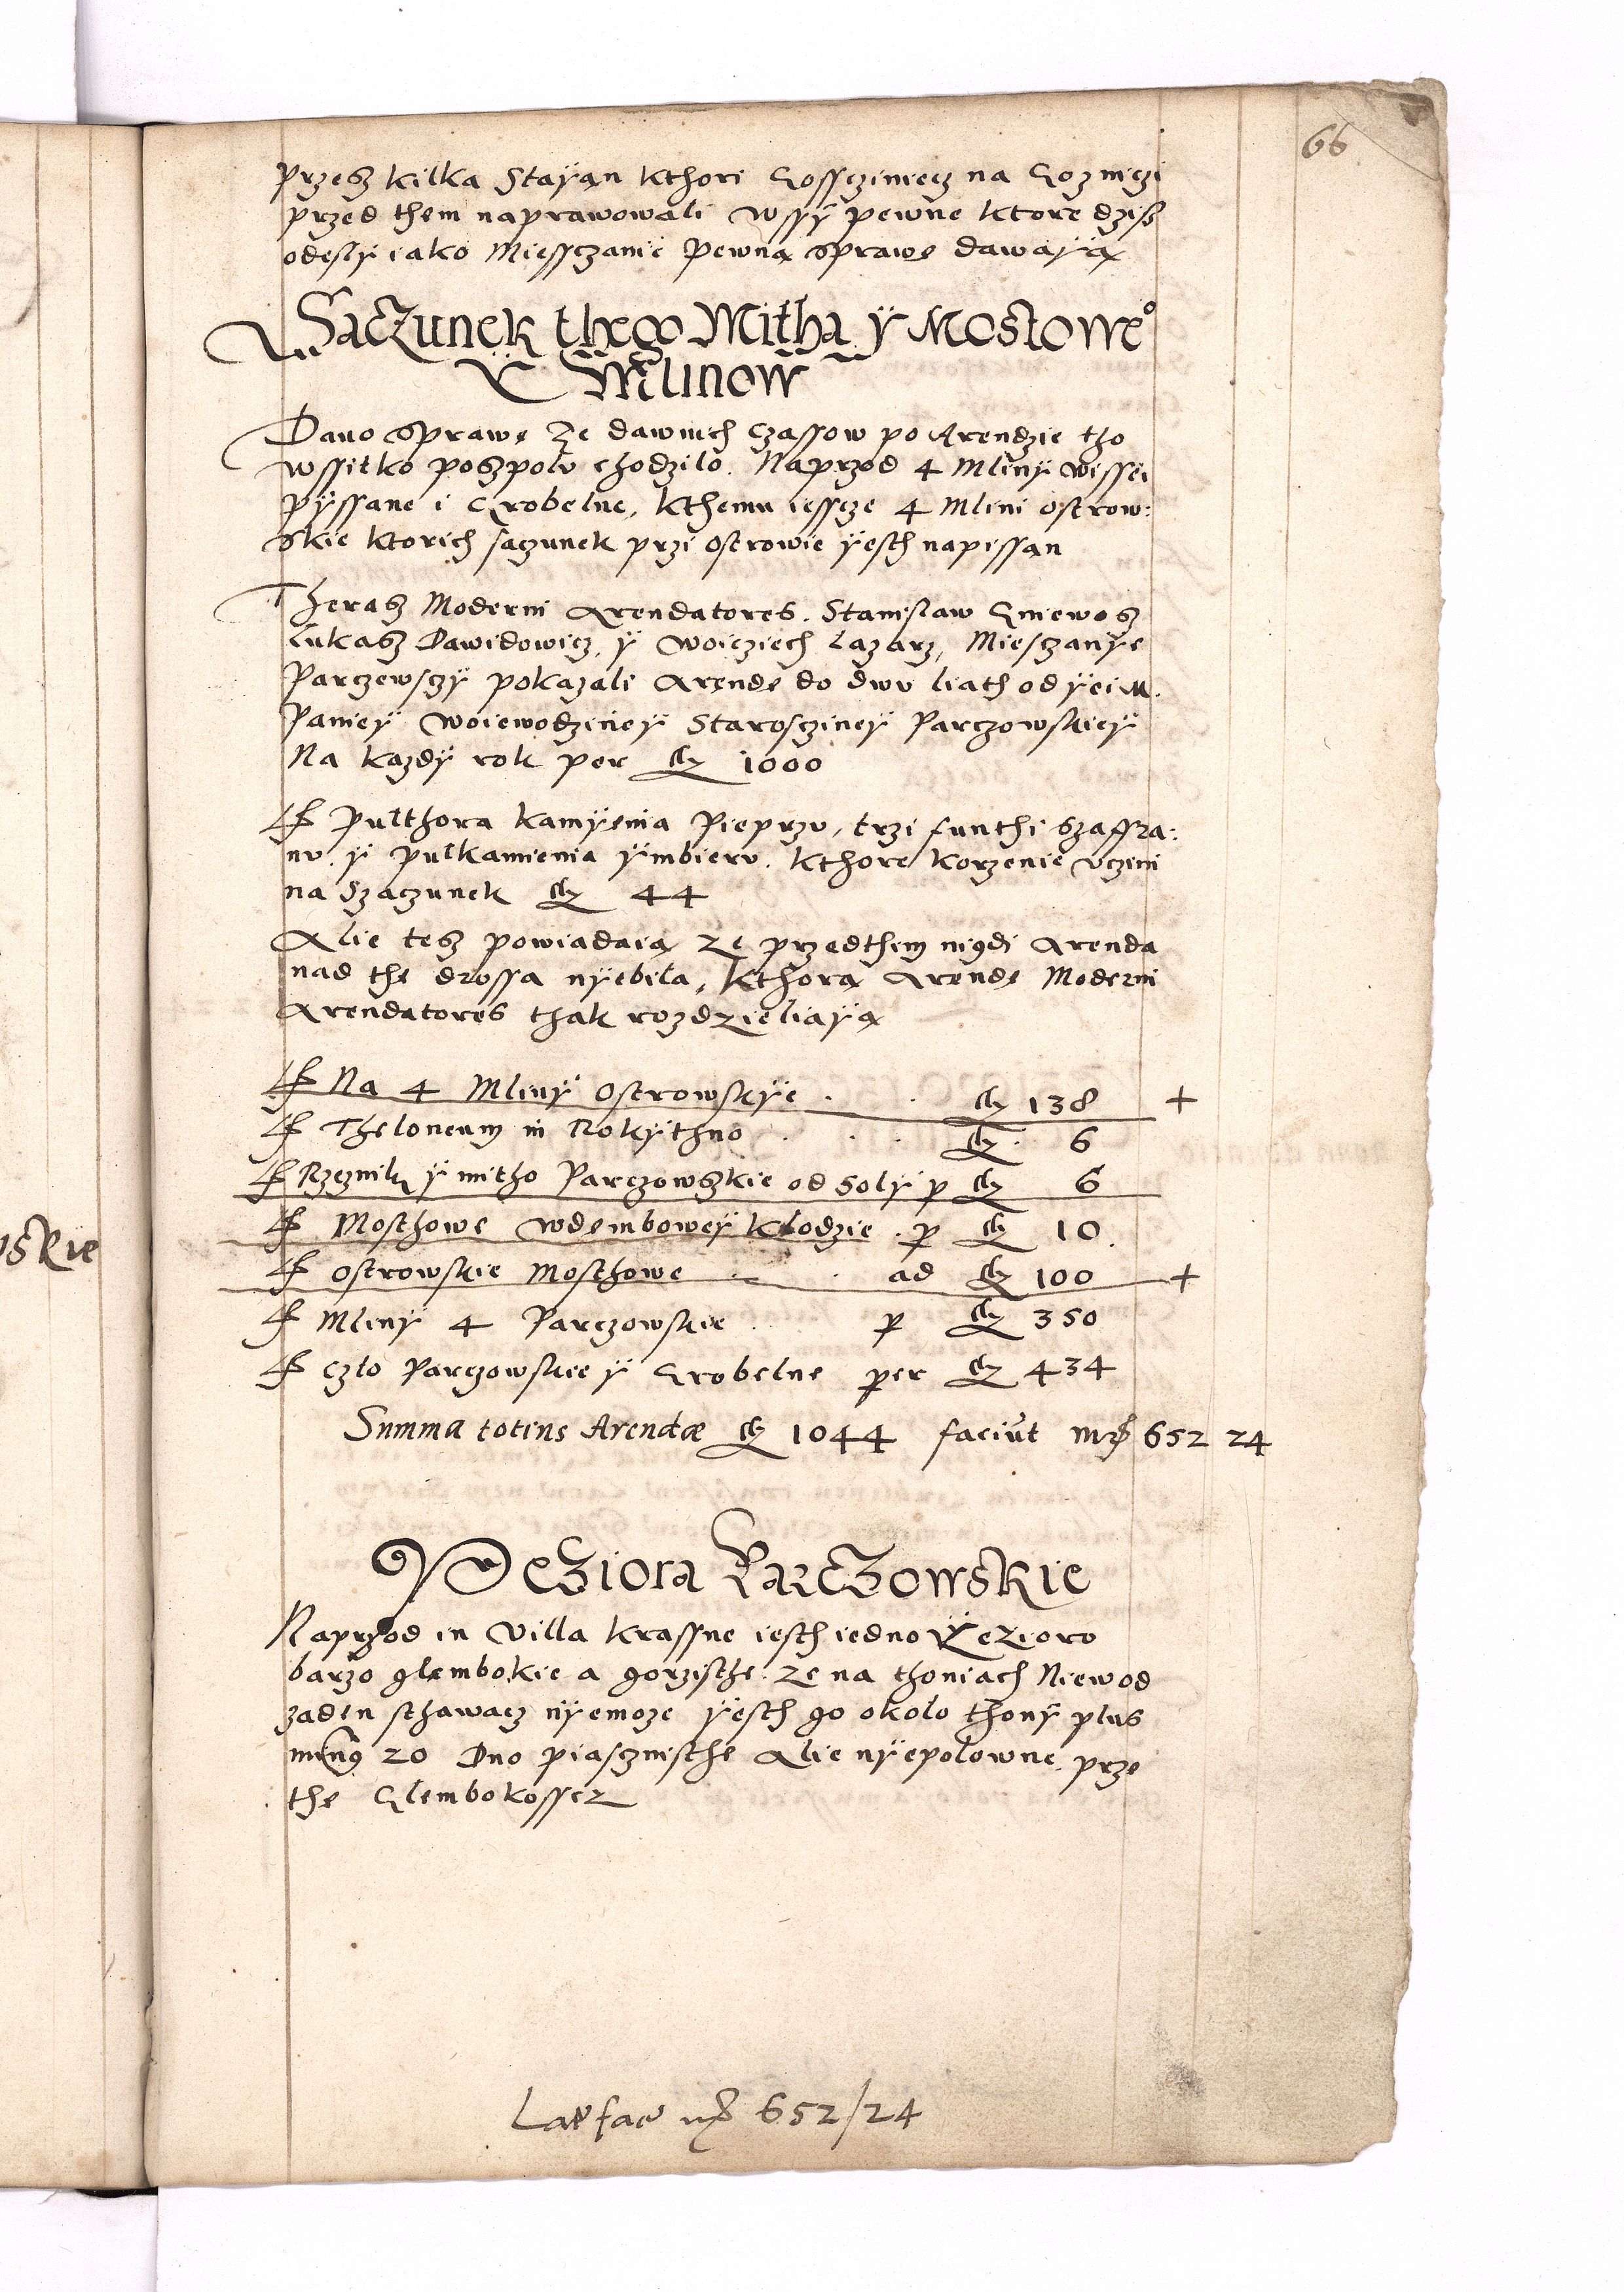 66
przesz kilka Stayąn kthori Gossczinięcz na Gozniczi
przed them naprawowali wssÿ pewne ktore dziss
odeslÿ iako Miessczanie Pewną sprawę dawaÿą
Saczunek thego Mitha ÿ Mostowe°
Ÿ Mlinow
Dano sprawę ze dawnich czassow po Arendzie tho
wssitko poszpolv chodzilo. Naprzod 4 Mlinÿ wissei
pÿssane i Grobelne, kthemu iessze 4 Mlini ostrow:
skie ktorich saczunek przi Ostrowie ÿesth napissan
Therasz Moderni Arendatores. Stanislaw Gniewosz
Lukasz Dawidowicz, ÿ Woicziech Lazarz, Miesczanÿe
Parczewsczÿ pokazali Arendę do dwv liath od ÿei M.
Paniey Woiewodzinëy Starosczinëy Parczowskieÿ
Na kazdÿ rok per fl 1000
It Pulthora kamÿenia Pieprzv, trzi funthi szaffra:
nv. ÿ pulkamienia ÿmbierv. kthore korzenie vczini
na szaczunek fl 44
Alie tesz powiadaią ze przedthim nigdi Arenda
nad thę drossa nÿebila, kthorą Arendę Moderni
Arendatores thak rozdzieliaÿą
It Na 4 Mlinÿ Ostrowskÿe . . fl 138 +
It Theloneum in Rokÿthno . . . fl 6
It Rzeznikÿ ÿ mitho Parczowszkie od soli p fl 6
It Mosthowe wdembowëy klodzie . p fl 10.
It Ostrowskie Mosthowe . . ad fl 100 +
It Mlinÿ 4 Parczowskie . p fl 350
It Czlo Parczowskie ÿ Grobelne per fl 434
Summa totius Arendæ fl 1044 faciut mr 652 24
Ÿeziora Parczowskie
Naprzod in Villa krassne iesth iedno Ÿezioro
barzo glembokie a gorzisthe. ze na thoniach Niewod
zaden sthawacz nÿemoze ÿesth go okolo thonÿ plus
min9 20 Dno piasznisthe Alie nÿepolowne prze
the Glembokossez
Lat fac mr 652/24